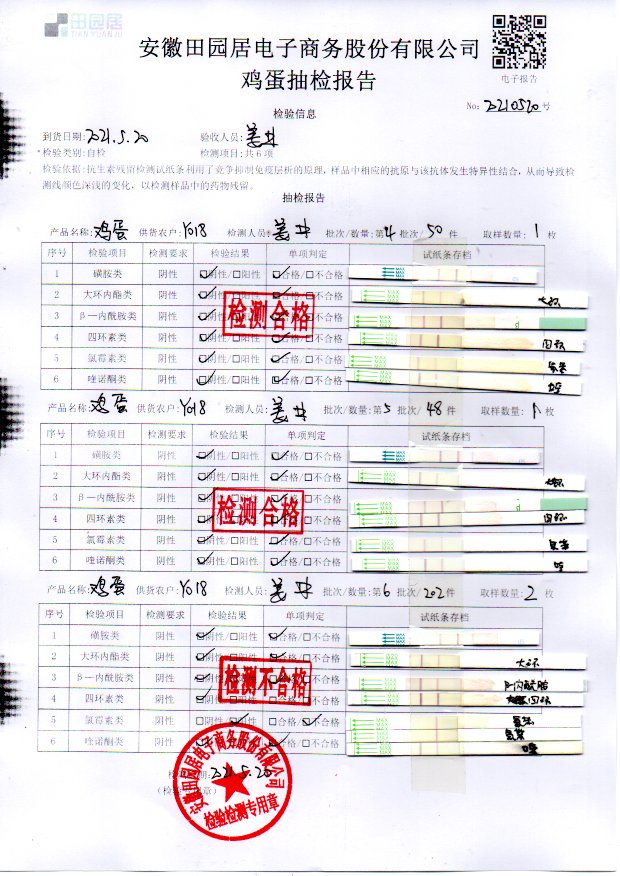 田园居
TIAN YUAN JU
安徽田园居电子商务股份有限公司
鸡蛋抽检报告
电子报告
No: 20210520号
检验信息
到货日期:2021.5.20 验收人员:姜井
*检验类别:自检 检测项目:共6项
检验依据:抗生素残留检测试纸条利用了竞争抑制免疫层析的原理，样品中相应的抗原与该抗体发生特异性结合，从而导致检
测线颜色深浅的变化，以检测样品中的药物残留。
抽检报告
产品名称:鸡蛋 供货农户:Y018 检测人员:姜井 批次/数量:第4 批次/50 件 取样数量:1 枚
序号 检验项目 检测要求 检验结果 单项判定 试纸条存档
1 磺胺类 阴性 ☑阴性/□阳性 ☑合格/□不合格
2 大环内酯类 阴性 ☑阴性/□阳性 ☑合格/□不合格 大环
3 β—内酰胺类 阴性 ☑阴性/□阳性 ☑合格/□不合格
4 四环素类 阴性 ☑阴性/□阳性 ☑合格/□不合格 四环
5 氯霉素类 阴性 ☑阴性/□阳性 ☑合格/□不合格
6 喹诺酮类 阴性 ☑阴性/□阳性 ☑合格/□不合格 喹
检测合格
产品名称:鸡蛋 供货农户:Y018 检测人员:姜井 批次/数量:第5 批次/48 件 取样数量:1 枚
序号 检验项目 检测要求 检验结果 单项判定 试纸条存档
1 磺胺类 阴性 ☑阴性/□阳性 ☑合格/□不合格
2 大环内酯类 阴性 ☑阴性/□阳性 ☑合格/□不合格 大环
3 β—内酰胺类 阴性 ☑阴性/□阳性 ☑合格/□不合格
4 四环素类 阴性 ☑阴性/□阳性 ☑合格/□不合格 四环
5 氯霉素类 阴性 ☑阴性/□阳性 ☑合格/□不合格
6 喹诺酮类 阴性 ☑阴性/□阳性 ☑合格/□不合格 喹
检测合格
产品名称:鸡蛋 供货农户:Y018 检测人员:姜井 批次/数量:第6 批次/202件 取样数量:2 枚
序号 检验项目 检测要求 检验结果 单项判定 试纸条存档
1 磺胺类 阴性 ☑阴性/□阳性 ☑合格/□不合格
2 大环内酯类 阴性 ☑阴性/□阳性 ☑合格/□不合格 大环
3 β—内酰胺类 阴性 ☑阴性/□阳性 ☑合格/□不合格 β-内酰胺
4 四环素类 阴性 ☑阴性/□阳性 ☑合格/□不合格 四环
5 氯霉素类 阴性 □阴性/☑阳性 □合格/☑不合格
6 喹诺酮类 阴性 ☑阴性/□阳性 ☑合格/□不合格 喹
检测不合格
2021.5.20
安徽田园居电子商务股份有限公司
检验检测专用章